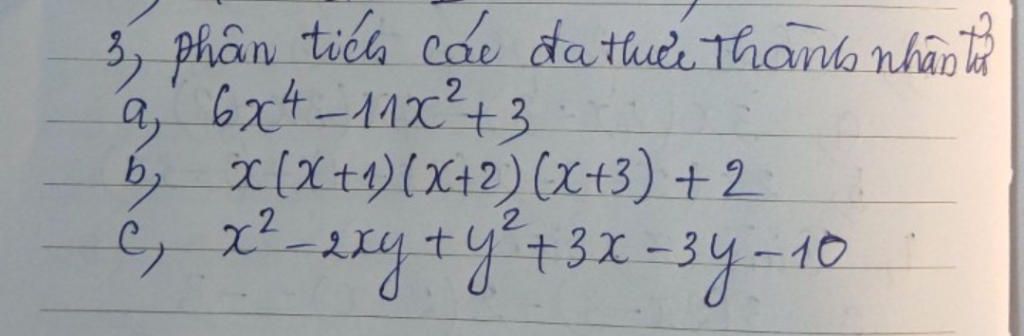 3, phân tích các đa thức thành nhân tử
a, 6x⁴ - 11x² + 3
b, x(x+1)(x+2)(x+3) + 2
c, x² - 2xy + y² + 3x - 3y - 10